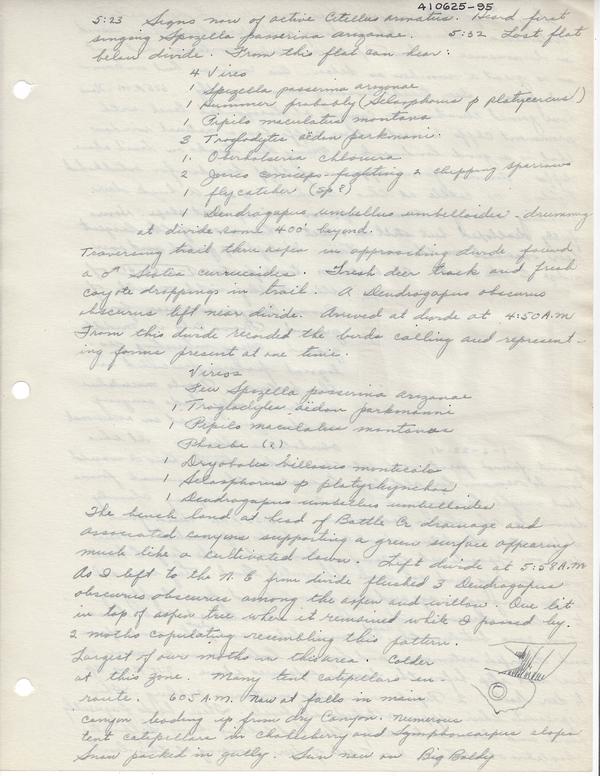 410625-95
5:23 Signs now of active Citellus armatus. Heard first
singing Spizella passerina arizonae. 5:32 Last flat
below divide. From this flat can hear:
4 Vireo
1 Spizella passerina arizonae
1 Hummer probably (Selasphorus p platycercus)
1 Pipilo maculatus montana
3 Troglodytes aëdon parkmani.
1. Oberholseria chlorura
2 Junco caniceps - fighting 2 chipping sparrows
1 flycatcher (sp?)
1 Dendragapus umbellus umbelloides - drumming
at divide some 400' beyond.
Traversing trail thru aspen in approaching divide found
a ♂ Sialia currucoides. Fresh deer track and fresh
coyote droppings in trail. A Dendragapus obscurus
obscurus left near divide. Arrived at divide at 4:50 A.M
From this divide recorded the birds calling and represent-
ing forms present at one time.
Vireos
Few Spizella passerina arizonae
1 Troglodytes aëdon parkmanni
1 Pipilo maculatus montanas
Phoebe (2)
1 Dryobates villosus monticola
1 Selasphorus p platyrhynchos
1 Dendragapus umbellus umbelloides
The bench land at head of Battle Cr drainage and
associated canyons supporting a green surface appearing
much like a cultivated lawn. Left divide at 5:58 A.M
As I left to the N. E from divide flushed 3 Dendragapus
obscurus obscurus among the aspen and willow. One lit
in top of aspen tree where it remained while I passed by.
2 moths copulating resembling this pattern.
Largest of our moths in this area. Colder
at this zone. Many tent catepillars en-
route. 605 A.M. Now at falls in main
canyon leading up from dry Canyon. Numerous
tent catepillars in Chokecherry and Symphoricarpus slope
Snow packed in gully. Sun now on Big Baldy